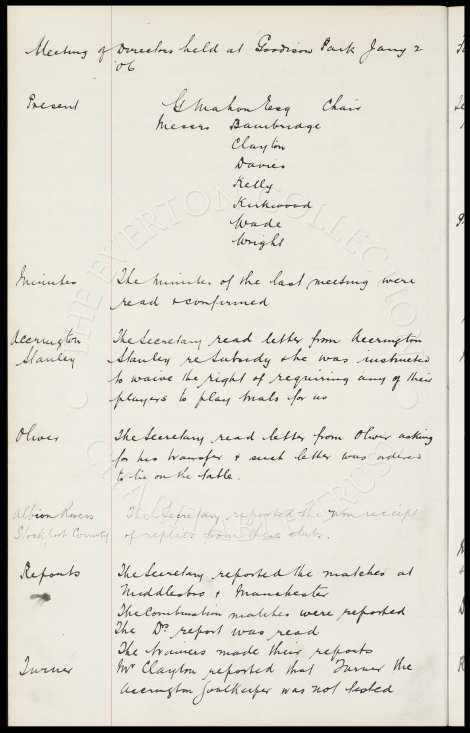 Meeting of Directors held at Goodison Park Jany 2
'06
Present G Mahon Esq Chair
Messrs Bainbridge
Clayton
Davies
Kelly
Kirkwood
Wade
Wright
Minutes The Minutes of the last meeting were
read & confirmed
Accrington The Secretary read letter from Accrington
Stanley Stanley re Subsidy & he was instructed
to waive the right of requiring any of their
players to play trials for us
Oliver The Secretary read letter from Oliver asking
for his transfer & such letter was ordered
to lie on the table.
Albion Rovers The Secretary reported the non receipt
Stockport County of replies from these clubs.
Reports The Secretary reported the matches at
Middlesbro & Manchester
The Combination matches were reported
The Drs report was read
The trainers made their reports
Turner Mr Clayton reported that Turner the
Accrington Goalkeeper was not tested
THE EVERTON COLLECTION
CHARITABLE TRUST